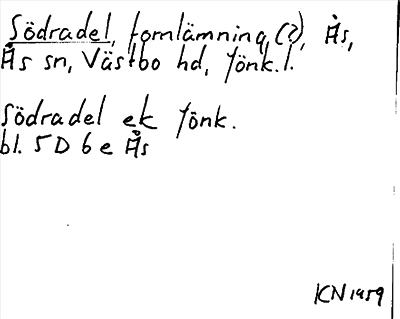 Södradel, fornlämning (?), Ås,
Ås sn, Västbo hd, Jönk. l.
Södradel ek Jönk.
bl. 5D 6e Ås
KN 1959